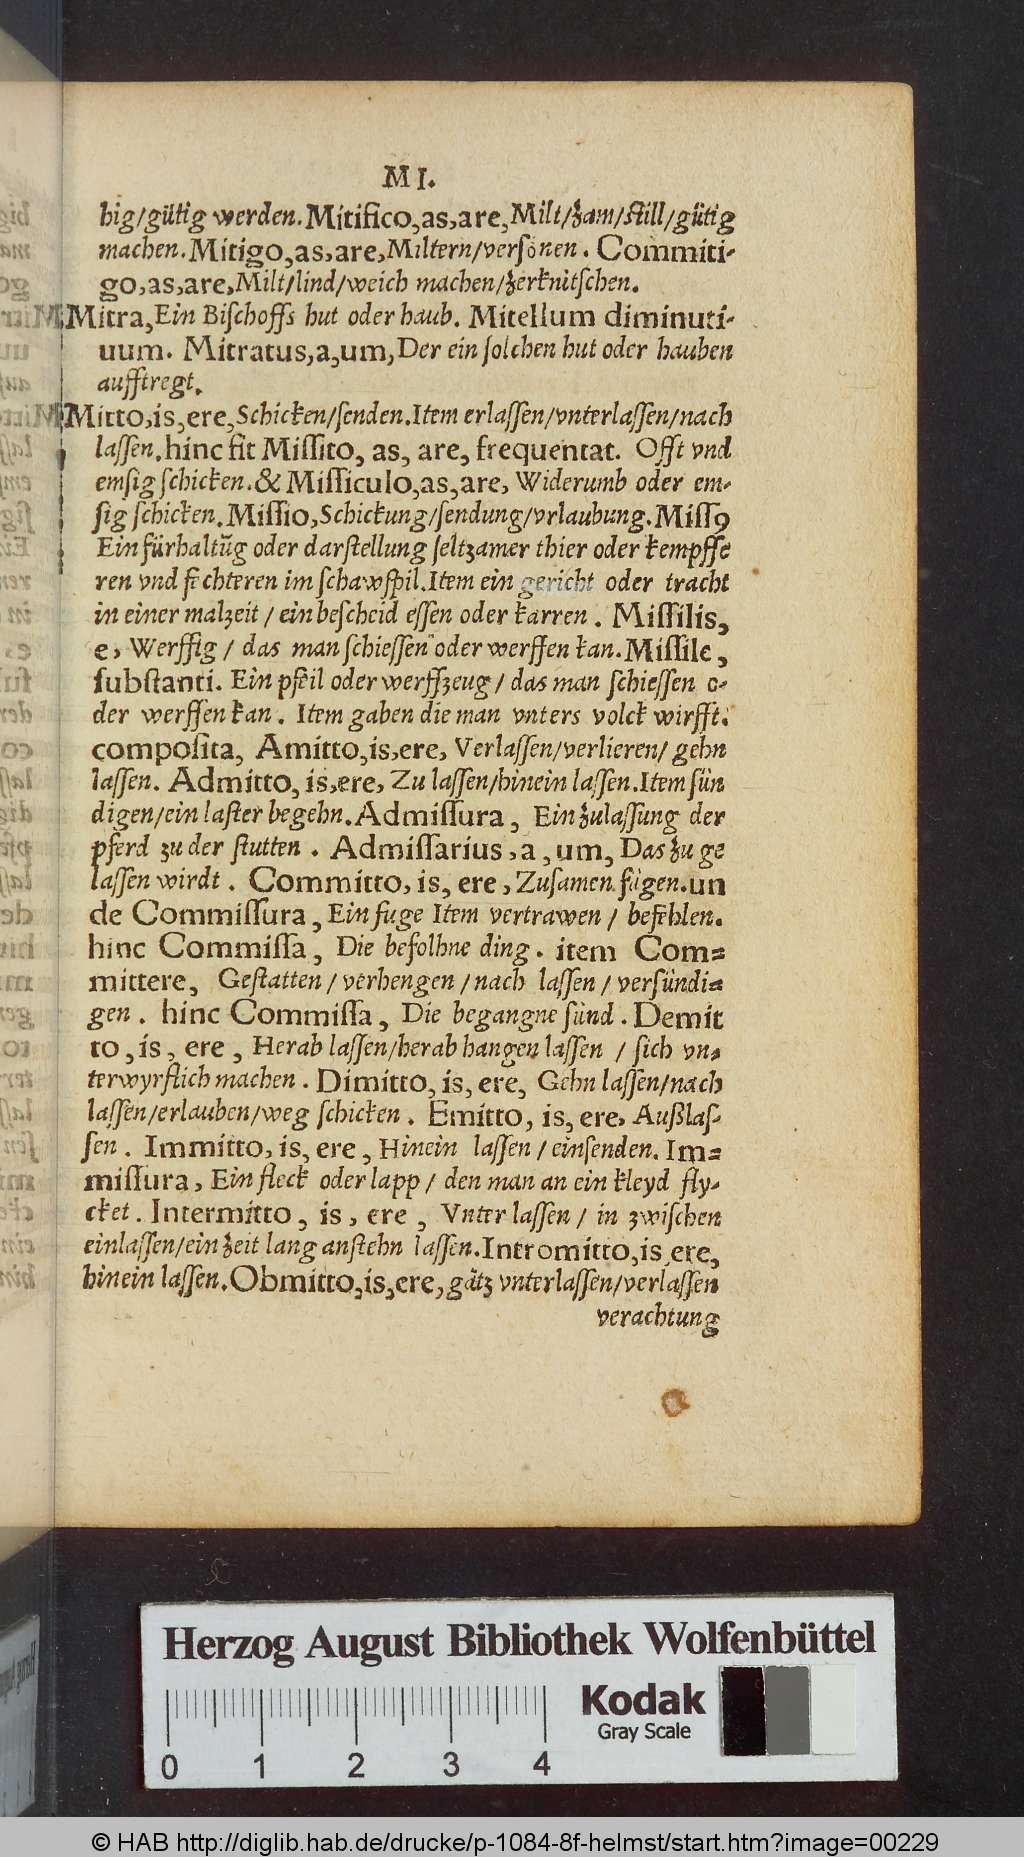 MI.
big/gütig werden. Mitifico,as,are, Milt/zam/still/gütig
machen. Mitigo,as,are, Miltern/versönen. Commiti-
go,as,are, Milt/lind/weich machen/zerknitschen.
Mitra, Ein Bischoffs hut oder haub. Mitellum diminuti-
uum. Mitratus,a,um, Der ein solchen hut oder hauben
aufftregt.
Mitto,is,ere, Schicken/senden. Item erlassen/vnterlassen/nach
lassen. hinc fit Missito, as, are, frequentat. Offt vnd
emsig schicken. & Missiculo,as,are, Widerumb oder em-
sig schicken. Missio, Schickung/sendung/vrlaubung. Missꝰ
Ein fürhaltũg oder darstellung seltzamer thier oder kempffe
ren vnd fechteren im schawspil. Item ein gericht oder tracht
in einer malzeit / ein bescheid essen oder karren. Missilis,
e, Werffig / das man schiessen oder werffen kan. Missile,
substanti. Ein pfeil oder werffzeug / das man schiessen o-
der werffen kan. Item gaben die man vnters volck wirfft.
composita, Amitto,is,ere, Verlassen/verlieren/ gehn
lassen. Admitto, is,ere, Zu lassen/hinein lassen. Item sün
digen/ein laster begehn. Admissura, Ein zulassung der
pferd zu der stutten. Admissarius, a, um, Das zu ge
lassen wirdt. Committo, is, ere, Zusamen fügen. un
de Commissura, Ein fuge Item vertrawen / befehlen.
hinc Commissa, Die befolhne ding. item Com-
mittere, Gestatten / verhengen / nach lassen / versündi-
gen. hinc Commissa, Die begangne sünd. Demit
to, is, ere, Herab lassen/herab hangen lassen / sich vn-
terwyrflich machen. Dimitto, is, ere, Gehn lassen/nach
lassen/erlauben/weg schicken. Emitto, is, ere, Außlas-
sen. Immitto, is, ere, Hinein lassen / einsenden. Im-
missura, Ein fleck oder lapp / den man an ein kleyd fly-
cket. Intermitto, is, ere, Vnter lassen / in zwischen
einlassen/ein zeit lang anstehn lassen. Intromitto,is,ere,
hinein lassen. Obmitto,is,ere, gätz vnterlassen/verlassen
verachtung
Herzog August Bibliothek Wolfenbüttel
Kodak
Gray Scale
0 1 2 3 4
© HAB http://diglib.hab.de/drucke/p-1084-8f-helmst/start.htm?image=00229